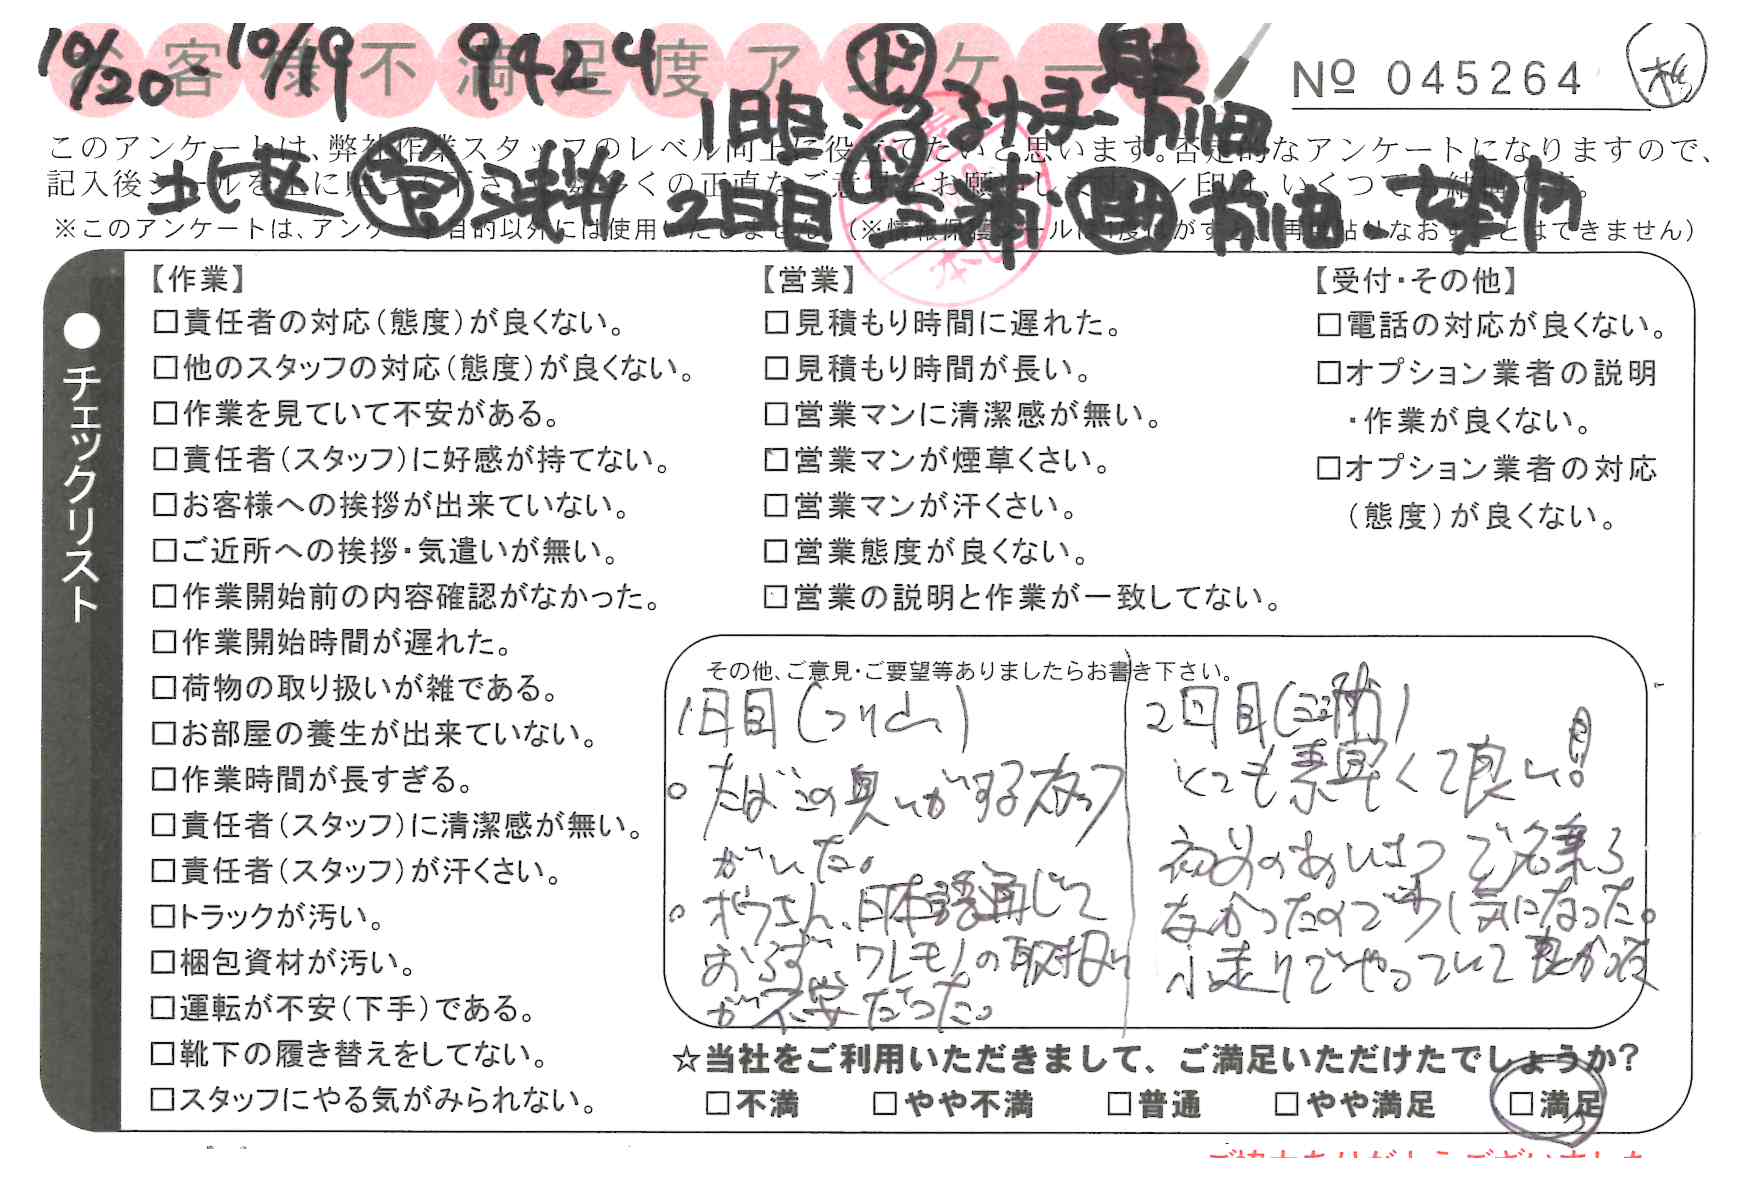 10/20 10/19 9424 ド
お客様不満足度アンケート
№ 045264
1日目
北区 営 2日目 三浦
このアンケートは、弊社作業スタッフのレベル向上に役立てたいと思います。否定的なアンケートになりますので、
記入後シールを上に貼って下さい。数多くの正直なご意見をお願いします。/印は、いくつでも結構です。
※このアンケートは、アンケート目的以外には使用いたしません。(※情報保護シールは1度はがすと、再度貼りなおすことはできません)
●チェックリスト
【作業】
□責任者の対応(態度)が良くない。
□他のスタッフの対応(態度)が良くない。
□作業を見ていて不安がある。
□責任者(スタッフ)に好感が持てない。
□お客様への挨拶が出来ていない。
□ご近所への挨拶・気遣いが無い。
□作業開始前の内容確認がなかった。
□作業開始時間が遅れた。
□荷物の取り扱いが雑である。
□お部屋の養生が出来ていない。
□作業時間が長すぎる。
□責任者(スタッフ)に清潔感が無い。
□責任者(スタッフ)が汗くさい。
□トラックが汚い。
□梱包資材が汚い。
□運転が不安(下手)である。
□靴下の履き替えをしてない。
□スタッフにやる気がみられない。
【営業】
□見積もり時間に遅れた。
□見積もり時間が長い。
□営業マンに清潔感が無い。
□営業マンが煙草くさい。
□営業マンが汗くさい。
□営業態度が良くない。
□営業の説明と作業が一致してない。
【受付・その他】
□電話の対応が良くない。
□オプション業者の説明
・作業が良くない。
□オプション業者の対応
(態度)が良くない。
その他、ご意見・ご要望等ありましたらお書き下さい。
1日目(つり山)
○たばこの臭いがするスタッフ
がいた。
○ボウさん、日本語通じて
おらず、ワレモノの取扱い
が不安だった。
2回目(三浦)
とても素早くて良い!
初めのあいさつで名乗ら
なかったので少し気になった。
小走りでやっていて良かった
☆当社をご利用いただきまして、ご満足いただけたでしょうか?
□不満 □やや不満 □普通 □やや満足 □満足
ご協力ありがとうございました